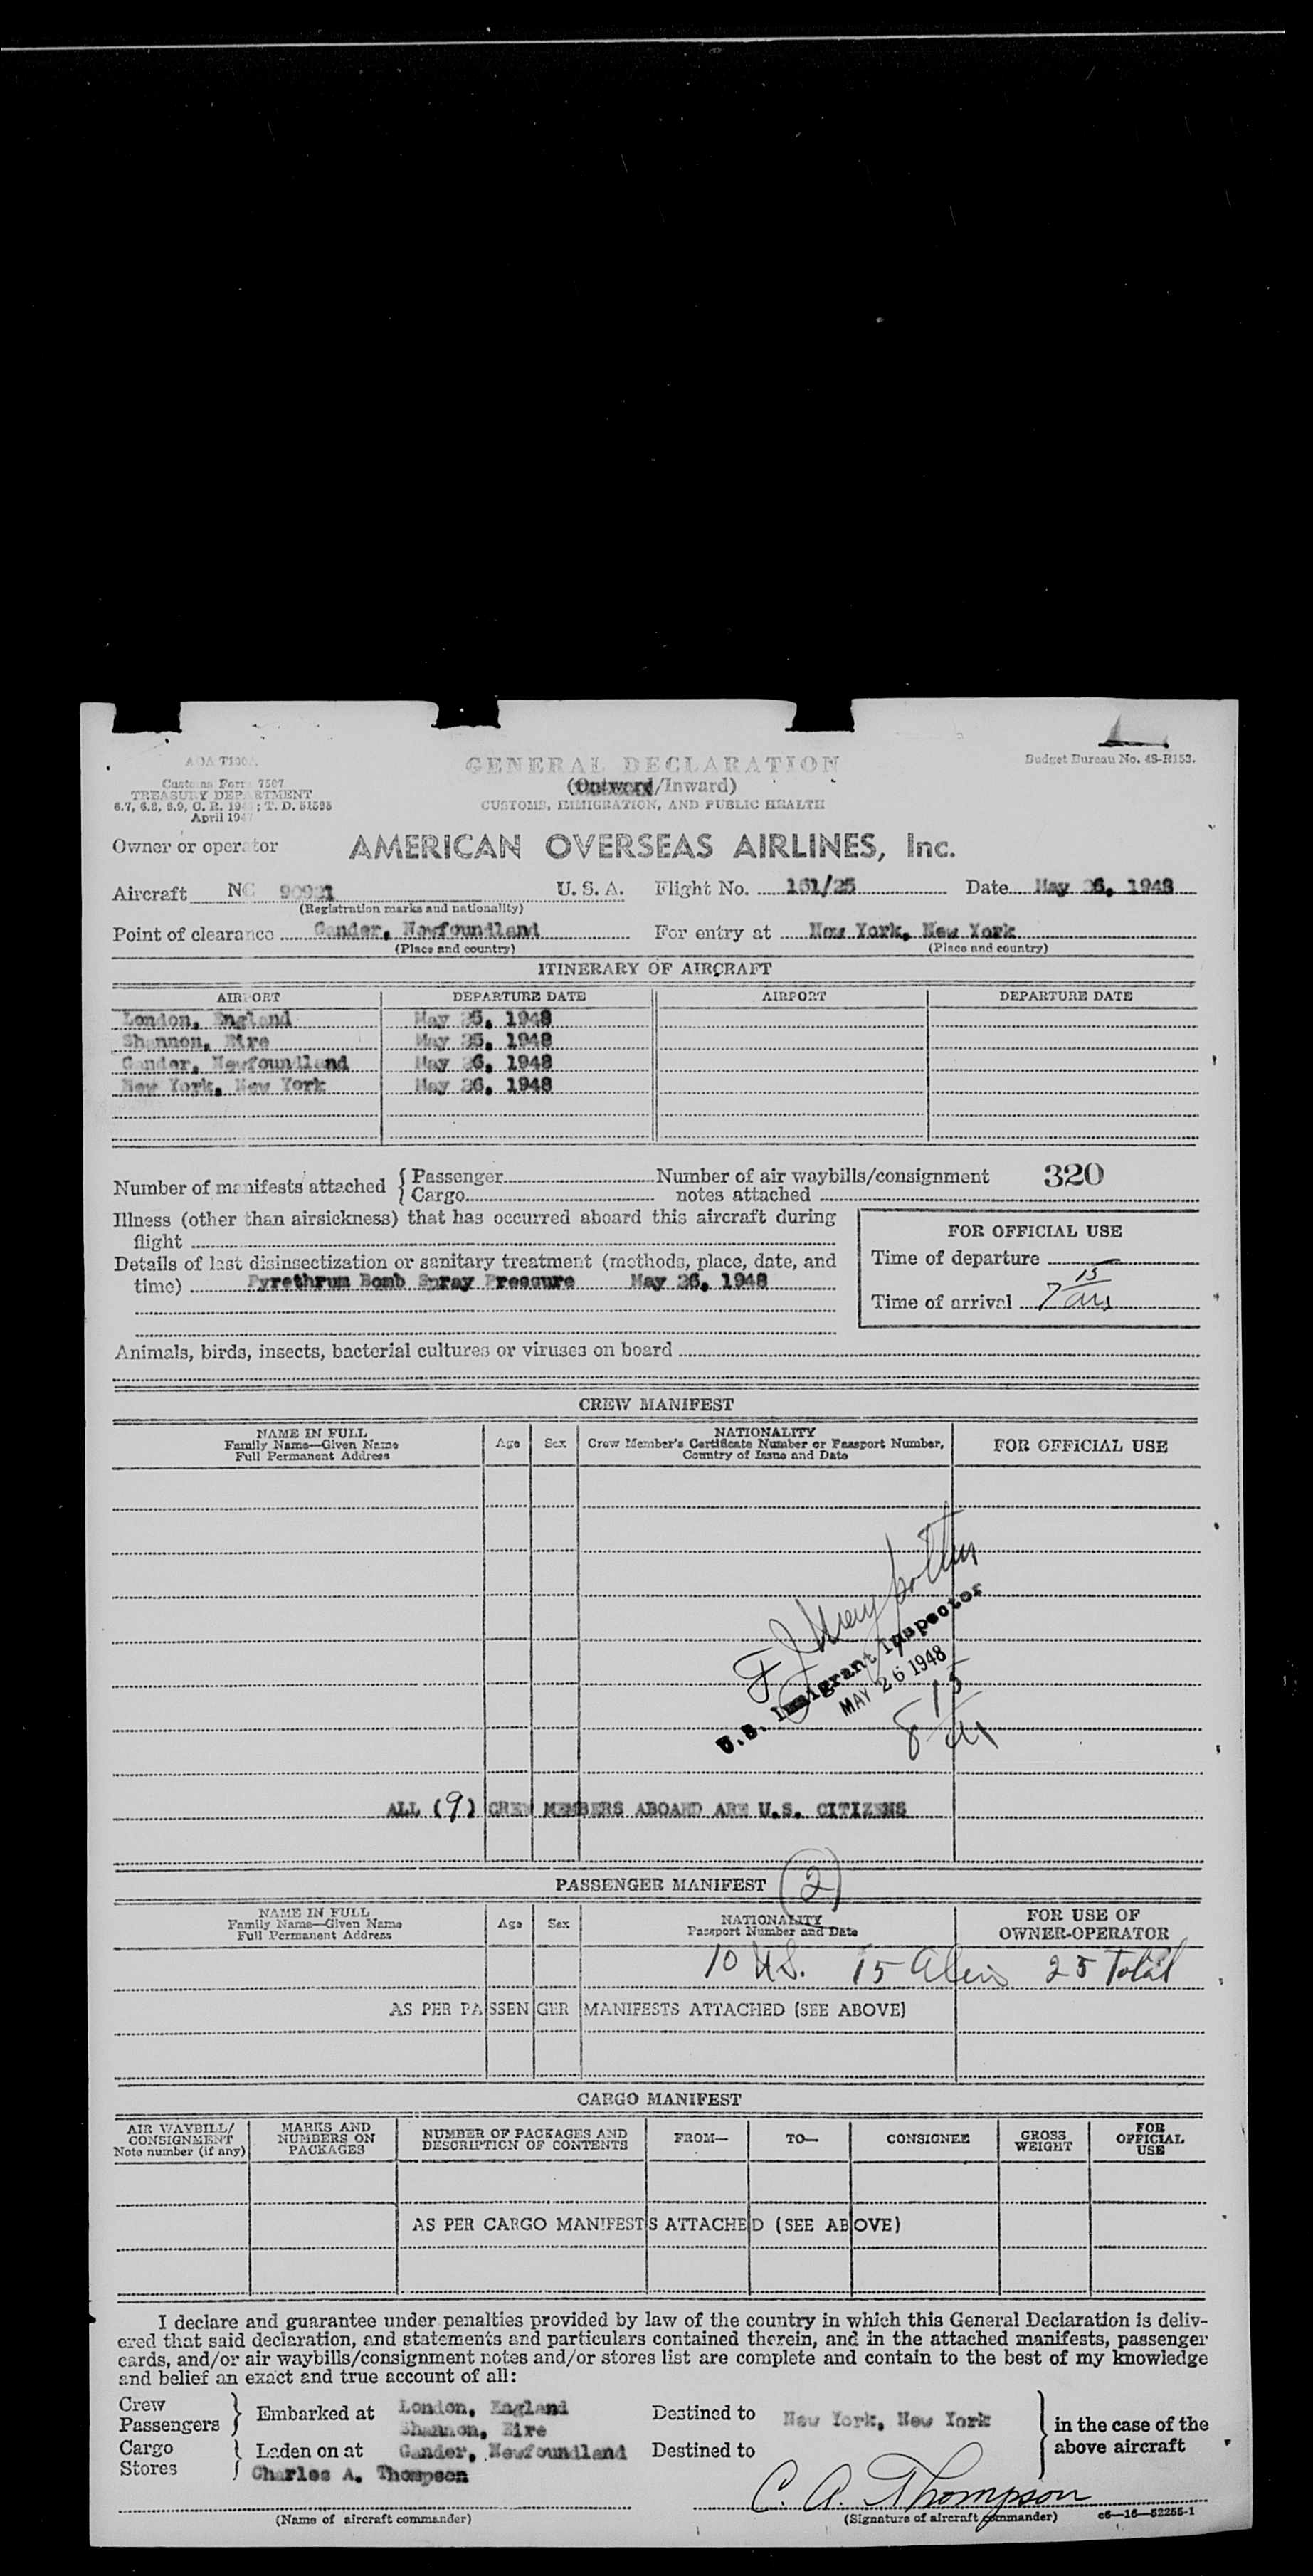 AOA T100
GENERAL DECLARATION
Budget Bureau No. 48-R153.
Customs Form 7507
TREASURY DEPARTMENT
6.7, 6.8, 6.9, C. R. 194 ; T. D. 51595
April 1947
(Outward/Inward)
CUSTOMS, IMMIGRATION, AND PUBLIC HEALTH
Owner or operator AMERICAN OVERSEAS AIRLINES, Inc.
Aircraft NC 90921 U. S. A. Flight No. 151/25 Date May 26, 1948
(Registration marks and nationality)
Point of clearance Gander, Newfoundland For entry at New York, New York
(Place and country) (Place and country)
ITINERARY OF AIRCRAFT
AIRPORT DEPARTURE DATE AIRPORT DEPARTURE DATE
London, England May 25, 1948
Shannon, Eire May 25, 1948
Gander, Newfoundland May 26, 1948
New York, New York May 26, 1948
Number of manifests attached { Passenger Number of air waybills/consignment 320
Cargo notes attached
Illness (other than airsickness) that has occurred aboard this aircraft during
flight
FOR OFFICIAL USE
Details of last disinsectization or sanitary treatment (methods, place, date, and
time) Pyrethrum Bomb Spray Pressure May 26, 1948
Time of departure
Time of arrival 7 15 am
Animals, birds, insects, bacterial cultures or viruses on board
CREW MANIFEST
NAME IN FULL
Family Name—Given Name
Full Permanent Address
Age
Sex
NATIONALITY
Crew Member's Certificate Number or Passport Number,
Country of Issue and Date
FOR OFFICIAL USE
U.S. Immigrant Inspector
MAY 26 1948
8 15
ALL (9) CREW MEMBERS ABOARD ARE U.S. CITIZENS
PASSENGER MANIFEST (2)
NAME IN FULL
Family Name—Given Name
Full Permanent Address
Age
Sex
NATIONALITY
Passport Number and Date
FOR USE OF
OWNER-OPERATOR
10 U.S. 15 Alens 25 Total
AS PER PASSENGER MANIFESTS ATTACHED (SEE ABOVE)
CARGO MANIFEST
AIR WAYBILL/
CONSIGNMENT
Note number (if any)
MARKS AND
NUMBERS ON
PACKAGES
NUMBER OF PACKAGES AND
DESCRIPTION OF CONTENTS
FROM—
TO—
CONSIGNEE
GROSS
WEIGHT
FOR
OFFICIAL
USE
AS PER CARGO MANIFESTS ATTACHED (SEE ABOVE)
I declare and guarantee under penalties provided by law of the country in which this General Declaration is deliv-
ered that said declaration, and statements and particulars contained therein, and in the attached manifests, passenger
cards, and/or air waybills/consignment notes and/or stores list are complete and contain to the best of my knowledge
and belief an exact and true account of all:
Crew
Passengers } Embarked at London, England Destined to New York, New York } in the case of the
Shannon, Eire above aircraft
Cargo
Stores } Laden on at Gander, Newfoundland Destined to
Charles A. Thompson C. A. Thompson
(Name of aircraft commander) (Signature of aircraft commander) c6—16—52255-1